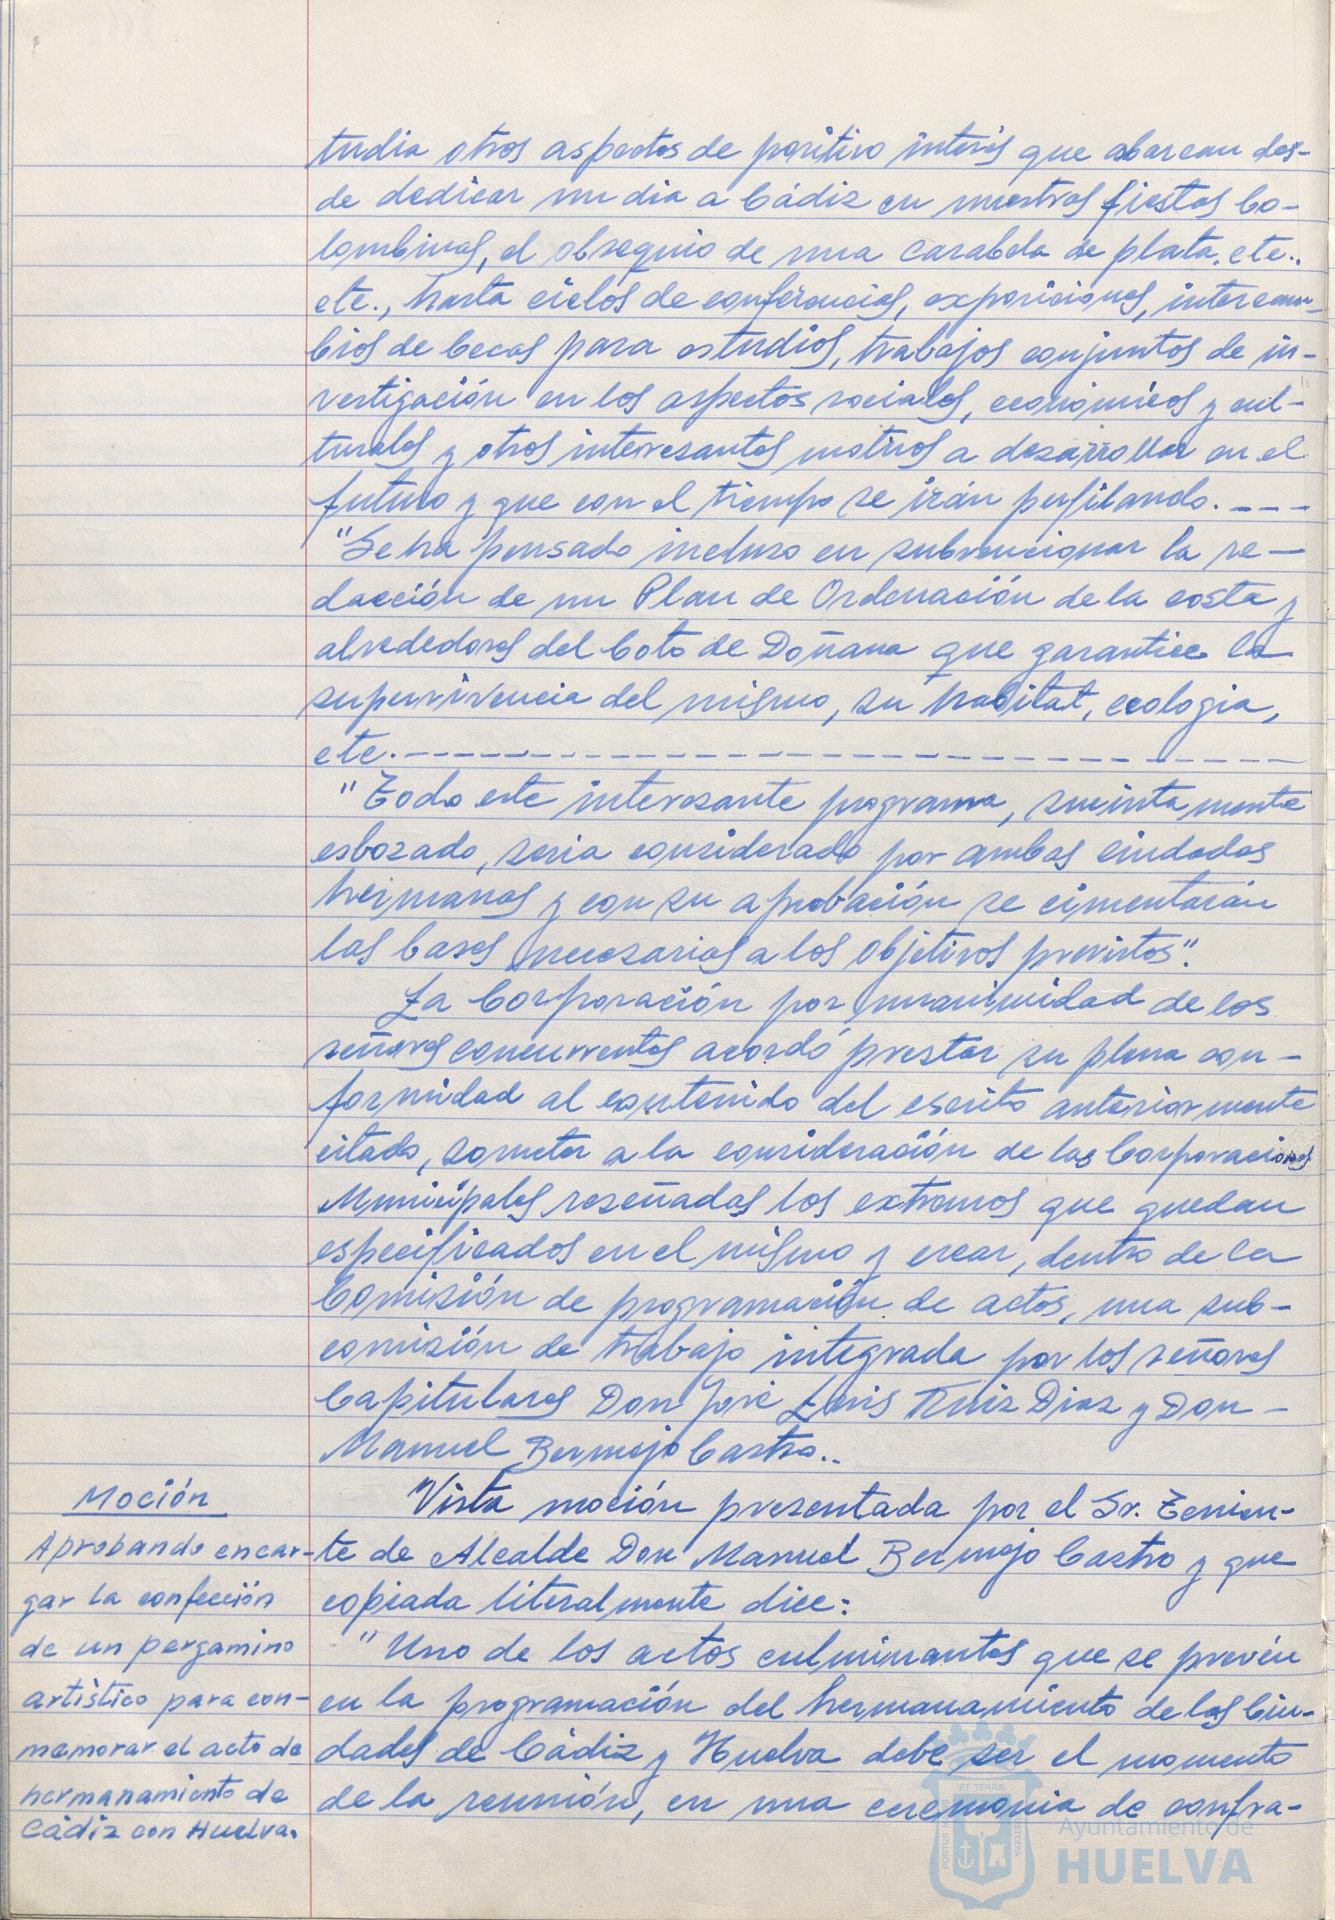 tudia otros aspectos de positivo interés que abarcan des-
de dedicar un dia a Cádiz en nuestras fiestas Co-
lombinas, el obsequio de una carabela de plata, etc.,
etc., hasta ciclos de conferencias, exposiciones, intercam-
bios de becas para estudios, trabajos conjuntos de in-
vestigación en los aspectos sociales, económicos y cul-
turales y otros interesantes motivos a desarrollar en el
futuro y que con el tiempo se irán perfilando. ---
"Se ha pensado incluso en subvencionar la re-
dacción de un Plan de Ordenación de la costa y
alrededores del Coto de Doñana que garantice la
supervivencia del mismo, su habitat, ecologia,
etc.-------------------
"Todo este interesante programa, sucintamente
esbozado, seria considerado por ambas ciudades
hermanas y con su aprobación se cimentarán
las bases necesarias a los objetivos previstos".
La Corporación por unanimidad de los
señores concurrentes acordó prestar su plena con-
formidad al contenido del escrito anteriormente
citado, someter a la consideración de las Corporaciones
Municipales reseñadas los extremos que quedan
especificados en el mismo y crear, dentro de la
Comisión de programación de actos, una sub-
comisión de trabajo integrada por los señores
Capitulares Don José Luis Ruiz Diaz y Don -
Manuel Bermejo Castro..
Moción
Vista moción presentada por el Sr. Tenien-
te de Alcalde Don Manuel Bermejo Castro y que
copiada literalmente dice:
"Uno de los actos culminantes que se prevén
en la programación del hermanamiento de las Ciu-
dades de Cádiz y Huelva debe ser el momento
de la reunión, en una ceremonia de confra-
Aprobando encar-
gar la confección
de un pergamino
artistico para con-
memorar el acto de
hermanamiento de
Cádiz con Huelva.
Ayuntamiento de
HUELVA